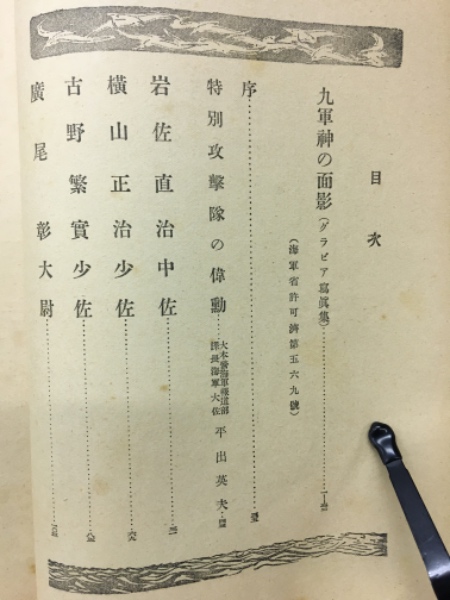 目次
九軍神の面影(グラビア寫眞集)
(海軍省許可濟第五六九號)
序
特別攻擊隊の偉勳
大本營海軍報道部
課長海軍大佐
平出英夫
岩佐直治中佐
横山正治少佐
古野繁實少佐
廣尾彰大尉